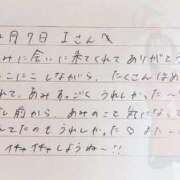 月7日 Iさんへ
みに会いに来てくれてありがとう
こにこしながら、たくさんはめ
れて、あみすっごくうれしかった〜
し前から あみのこと気になって
てたのもうれしかった♡ また
イチャイチャしようね〜!!